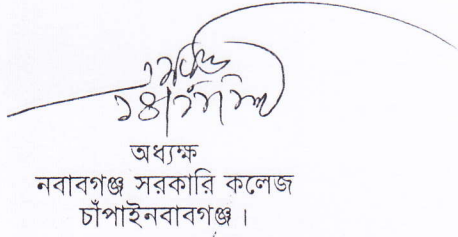 অধ্যক্ষ
নবাবগঞ্জ সরকারি কলেজ
চাঁপাইনবাবগঞ্জ।